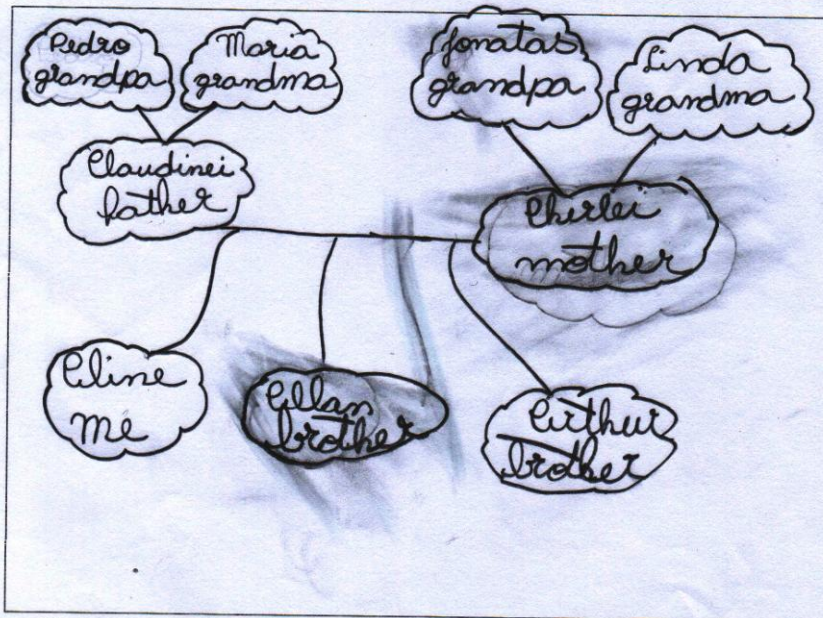 Pedro
grandpa
Maria
grandma
Jonatas
grandpa
Linda
grandma
Claudinei
father
mother
Aline
me
Allan
brother
Arthur
brother